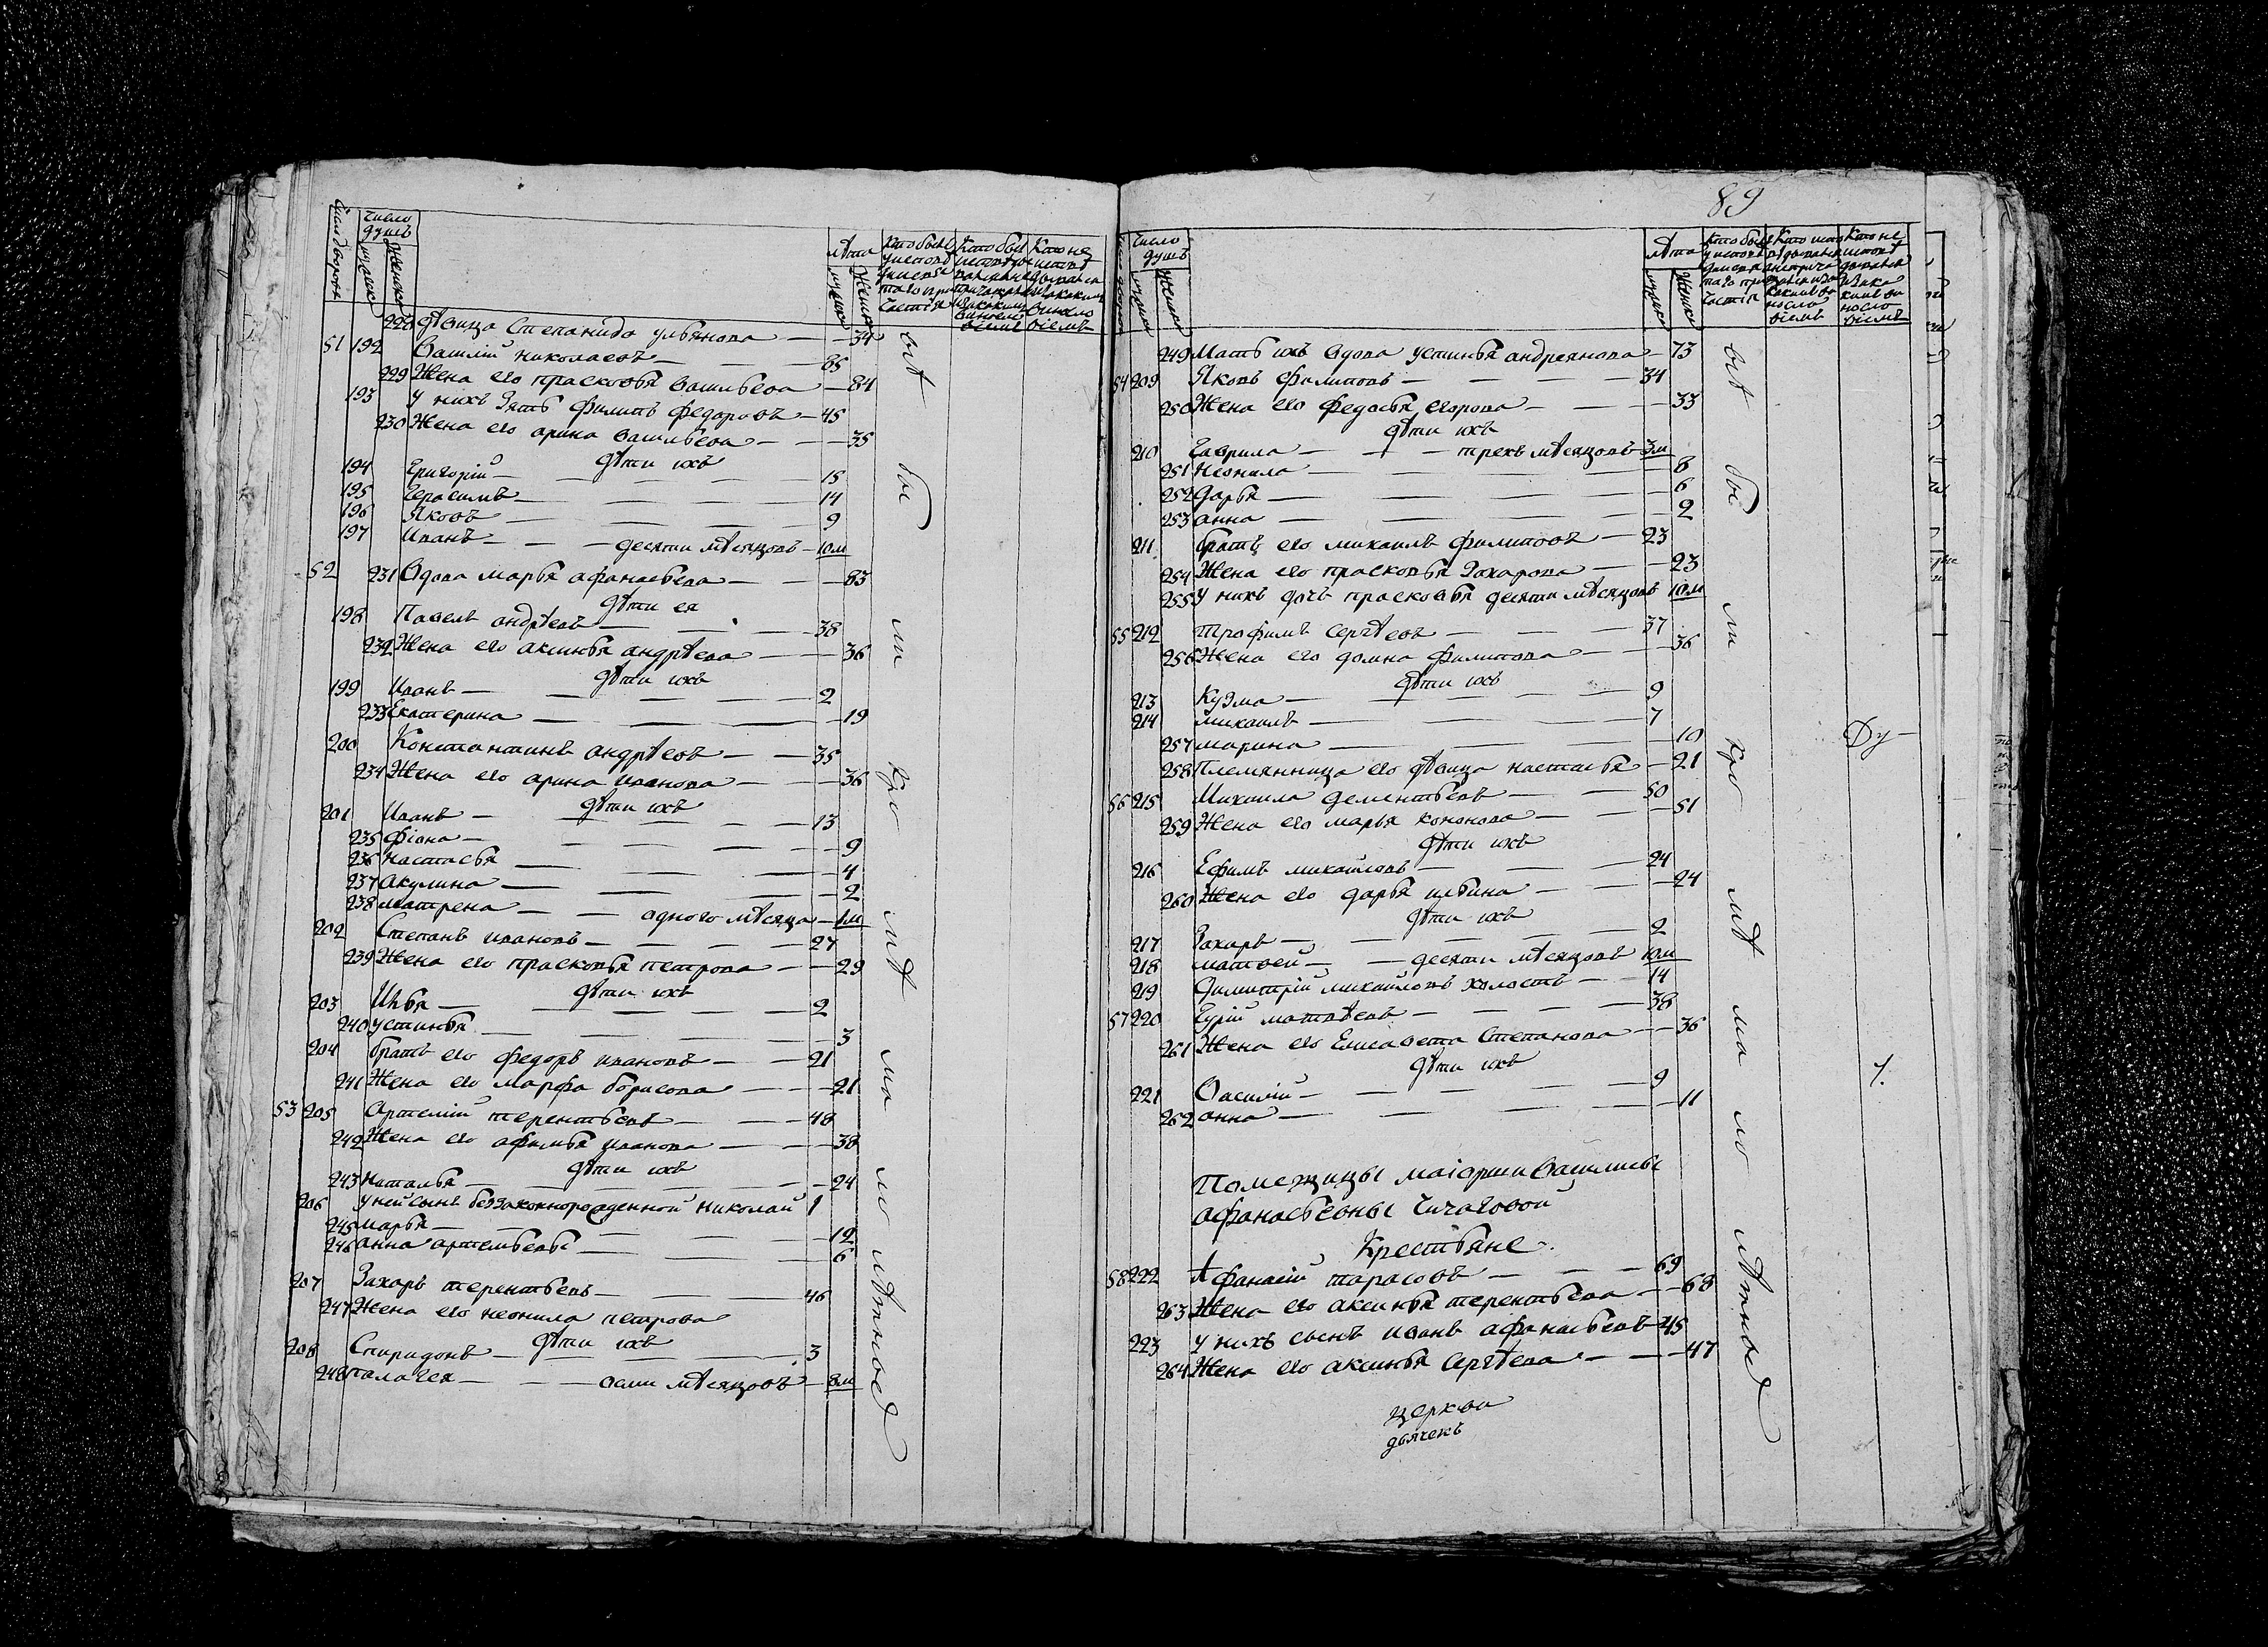 Число дворовъ
Число душъ
мужска
женска
Лѣта
мужска
женска
Кто былъ
Кто не
228 дѣвица Степанида ульянова — 34
51 192 Василій николаевъ — 85
229 Жена его прасковья васильева — 84
193 у нихъ Зять филипъ федоровъ — 45
230 Жена его арина васильева — 35
дѣти ихъ
194 Григорій — 15
195 Герасимъ — 14
196 Яковъ — 9
197 Иванъ — десяти мѣсяцовъ — 10м
52 231 Вдова марья афанасьева — 83
дѣти ея
198 Павелъ андрѣевъ — 38
232 Жена его аксинья андрѣева — 36
дѣти ихъ
199 Иванъ — 2
233 Екатерина — 19
200 Константинъ андрѣевъ — 35
234 Жена его арина иванова — 36
дѣти ихъ
201 Иванъ — 13
235 фіона — 9
236 настасья — 4
237 акулина — 2
238 матрена — одного мѣсяца — 1м
202 Степанъ ивановъ — 27
239 Жена его прасковья петрова — 29
дѣти ихъ
203 Илья — 2
240 устинья — 3
204 братъ его федоръ ивановъ — 21
241 Жена его марфа борисова — 21
53 205 Артемій терентьевъ — 48
242 Жена его афимья иванова — 38
дѣти ихъ
243 Наталья — 24
206 у ней сынъ беззаконнорожденной николай 1
245 марья — 12
246 анна артемьевы — 6
207 Захаръ терентьевъ — 46
247 Жена его неонила петрова
дѣти ихъ
208 Спиридонъ — 3
248 палагея — осми мѣсяцовъ — 8м
вѣ
бы
ли
кро
мѣ
ма
ло
лѣтных
89
Число душъ
мужска
женска
Лѣта
мужска
женска
249 Мать ихъ вдова устинья андреянова — 73
54 209 Яковъ филиповъ — 34
250 Жена его федосья егорова — 33
дѣти ихъ
210 Гаврила — трехъ мѣсяцовъ 3м
251 неонила — 8
252 дарья — 6
253 анна — 2
211 братъ его михаилъ филиповъ — 23
254 Жена его прасковья Захарова — 23
255 у нихъ дочь прасковья десяти мѣсяцовъ 10м
55 212 Трофимъ Сергѣевъ — 37
256 Жена его домна филипова — 36
дѣти ихъ
213 Кузма — 9
214 михаилъ — 7
257 марина — 10
258 Племянница его дѣвица настасья — 21
56 215 Михаила дементьевъ — 50
259 Жена его марья кононова — 51
дѣти ихъ
216 Ефимъ михайловъ — 24
260 Жена его дарья ильина — 24
дѣти ихъ
217 Захаръ — 2
218 матвей — десяти мѣсяцовъ 10м
219 Димитрій михайловъ холостъ — 14
57 220 Гурій матвѣевъ — 38
261 Жена его Елисавета Степанова — 36
дѣти ихъ
221 Василій — 9
262 анна — 11
Помещицы маіорши Василисы
афанасьевны Чичаговой
Крестьяне
58 222 Афанасій тарасовъ — 69
263 Жена его аксинья терентьева — 68
223 у нихъ сынъ иванъ афанасьевъ 45
264 Жена его аксинья Сергѣева — 47
церкви
дьячекъ
вѣ
бы
ли
кро
мѣ
ма
ло
лѣтных